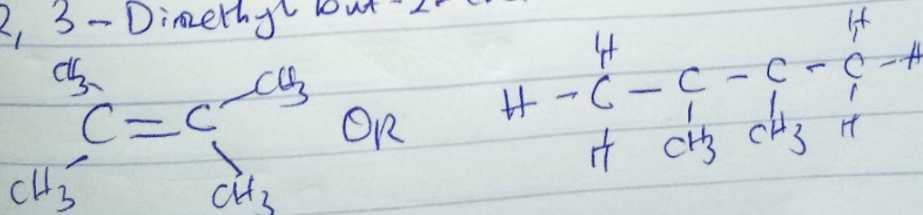 2, 3 - Dimethyl but-2-
CH3 CH3
C = C
CH3 CH3
OR
H H
H - C - C - C - C - H
H CH3 CH3 H